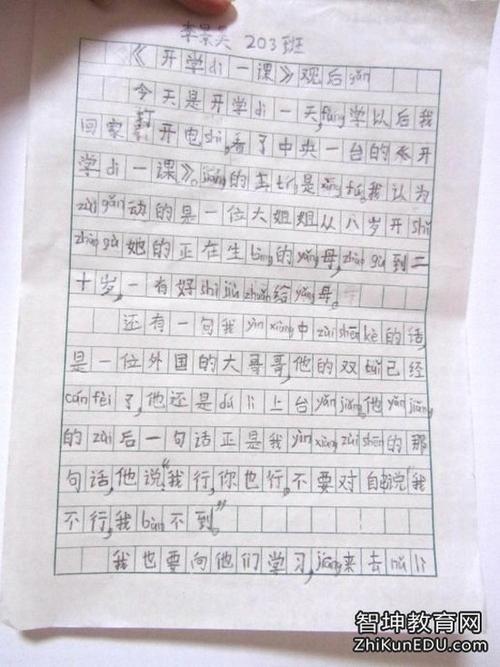 李景昊 203班
《开学di一课》观后gǎn
今天是开学di一天,fàng学以后我
回家打开电shì,看了中央一台的《开
学di一课》。jiǎng的主tí是xìng fú,我认为
zuì gǎn动的是一位大姐姐从八岁开shǐ
zhào gù她的正在生bìng的yǎng母,zhào gù到二
十岁,一有好shí jiù zhuǎn给yǎng母。
还有一句我yìn xiàng中zuì shēn kè的话,
是一位外国的大哥哥,他的双tuǐ已经
cán fèi了,他还是dú lì上台yǎn jiǎng,他yǎn jiǎng
的zuì后一句话正是我yìn xiàng zuì shēn的那
句话,他说“我行,你也行,不要对自己说“我
不行,我bàn不到。”
我也要向他们学习,jiāng来去nǔ lì
智坤教育网
ZhiKunEDU.com